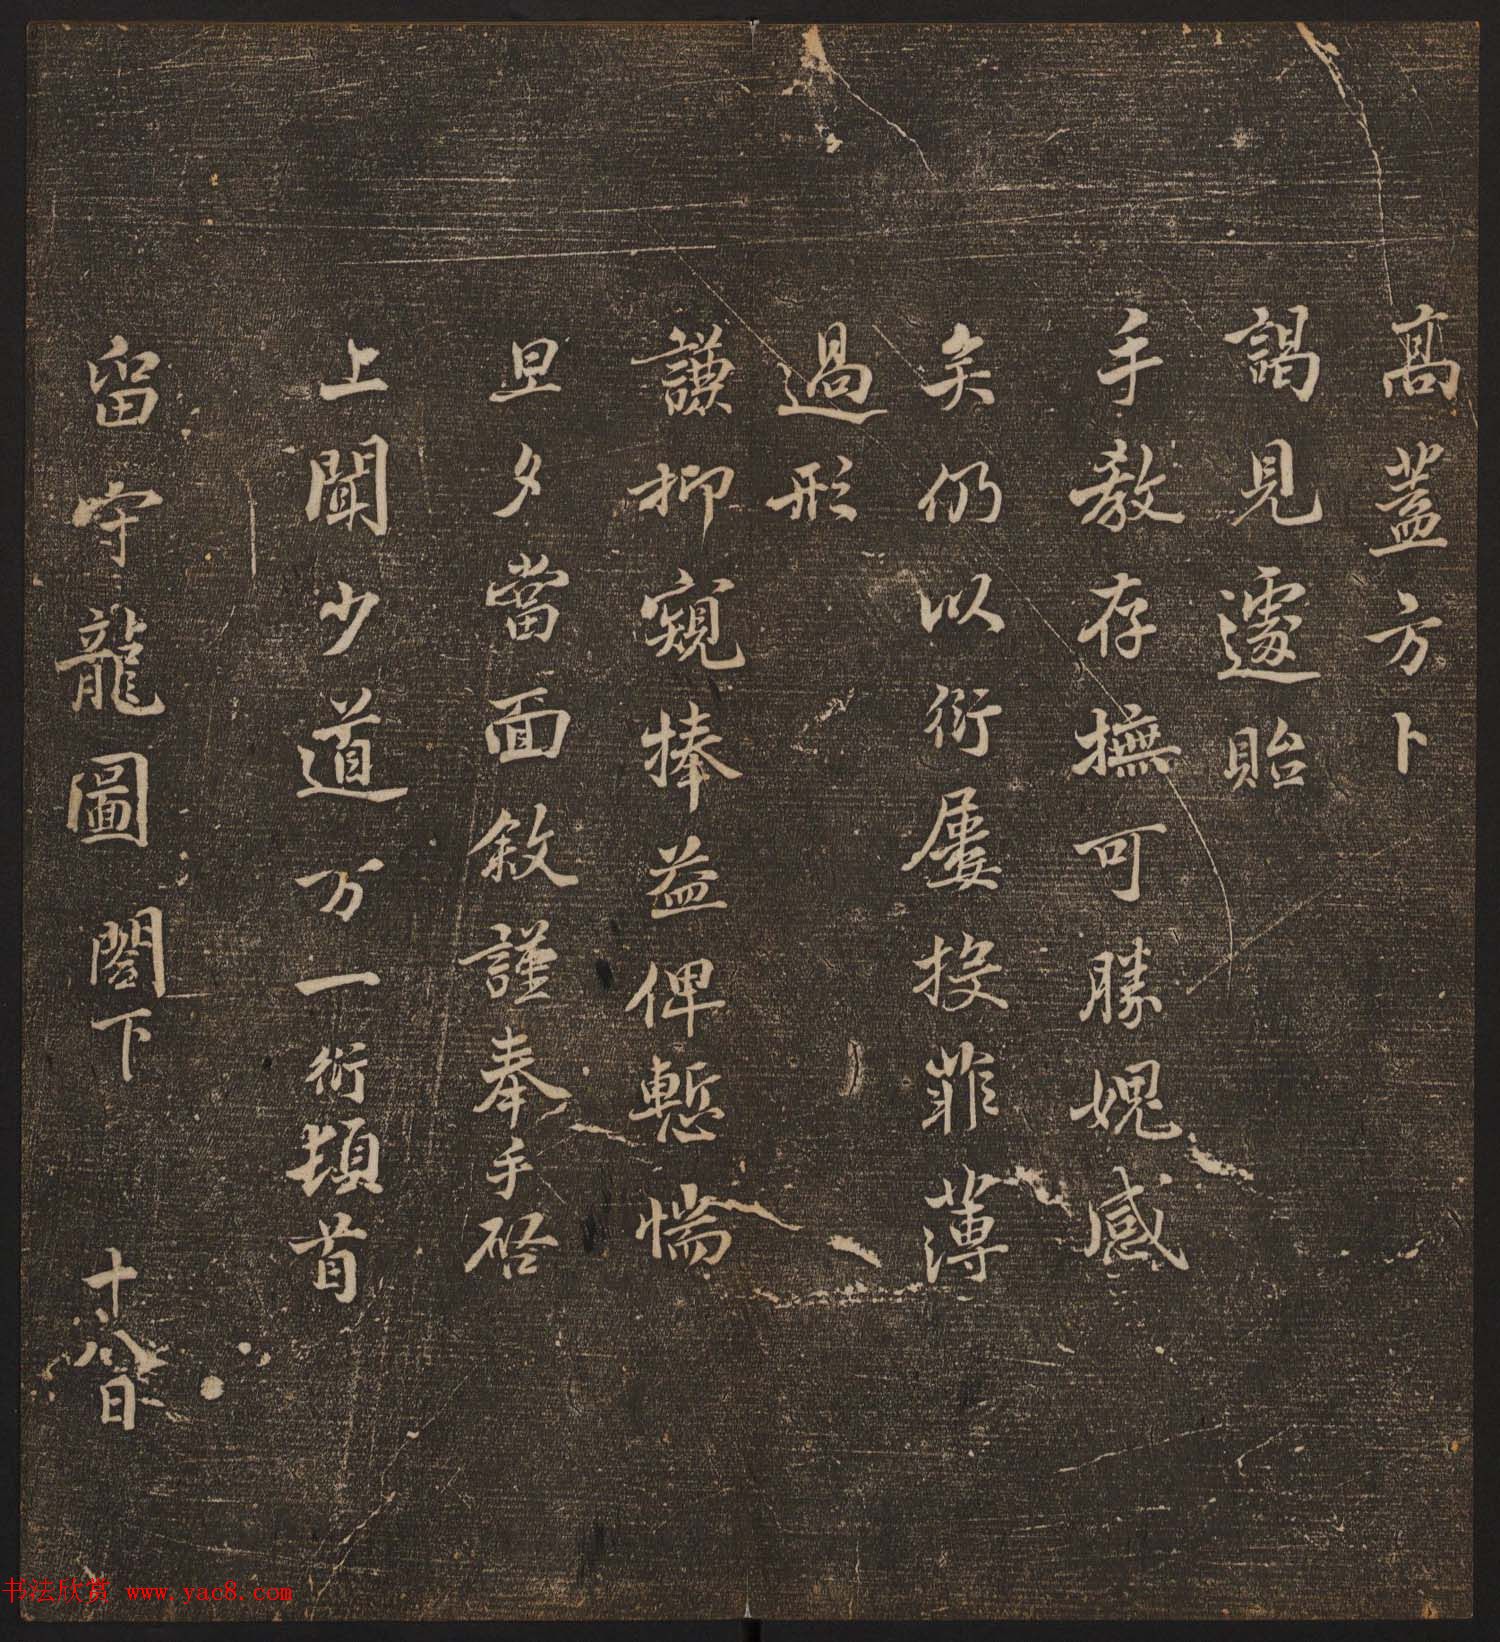 高蓋方卜
謁見遽貽
手教存撫可勝媿感
矣仍以衍屢投菲薄
過形
謙抑窺捧益俾慙惴
旦夕當面敘謹奉手啓
上聞少道万一衍頓首
留守龍圖閣下 十八日
书法欣赏 www.yac8.com